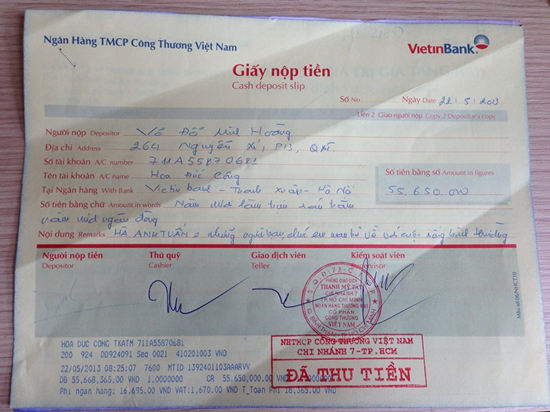 Ngân Hàng TMCP Công Thương Việt Nam
VietinBank
Giấy nộp tiền
Cash deposit slip
Số No Ngày Date 22/5/2013
Liên 2 Giao người nộp Copy 2 Depositor's copy
Người nộp Depositor Võ Đỗ Minh Hoàng
Địa chỉ Address 264 Nguyễn Xí, P13,
Số tài khoản A/C number 711A55870681
Tên tài khoản A/C name Hoa Đức Công
Tại Ngân hàng With Bank Vietinbank - Thanh Xuân - Hà Nội
Số tiền bằng số Amount in figures
55.650.000
Số tiền bằng chữ Amount in words Năm mươi lăm triệu sáu trăm
năm mươi ngàn đồng
Nội dung Remarks HÀ ANH TUẤN & những người bạn, cuộc sống bình thường
Người nộp tiền
Depositor
Thủ quỹ
Cashier
Giao dịch viên
Teller
Kiểm soát viên
PHÒNG GIAO DỊCH
CHI NHÁNH 7
TP.HỒ CHÍ MINH
NGÂN HÀNG THƯƠNG MẠI
CỔ PHẦN
CÔNG THƯƠNG
VIỆT NAM
HOA DUC CONG TKATM 711A55870681
200 924 DD924091 Seq 0021 410201003 VND
22/05/2013 08:25:07 7600 MTID 1392401103AAARVV
DB 55,668,365.00 VND 1.0000000 CR 55,650,000.00 VND
Phi ngan hang: 16,695.00 VAT:1,670.00 VND T_Toan Phi 18,365.00 VND
NHTMCP CÔNG THƯƠNG VIỆT NAM
CHI NHÁNH 7-TP.HCM
ĐÃ THU TIỀN